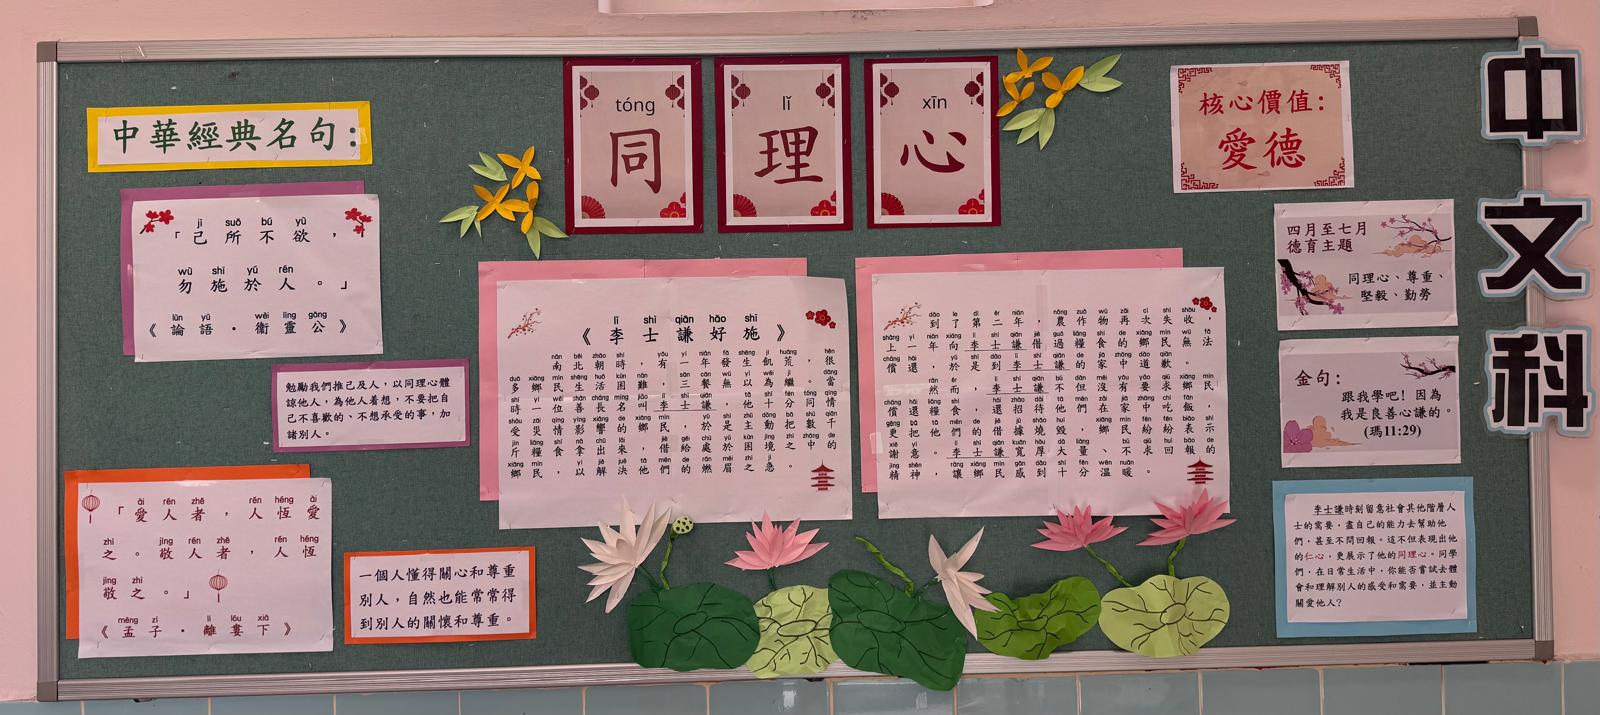 中華經典名句：
tóng
同
lǐ
理
xīn
心
核心價值：
愛德
中文科
jǐ suǒ bú yù
「己所不欲，
wù shī yú rén
勿施於人。」
lùn yǔ wèi líng gōng
《論語．衞靈公》
勉勵我們推己及人，以同理心體
諒他人，為他人着想，不要把自
己不喜歡的、不想承受的事，加
諸別人。
ài rén zhě rén héng ài
「愛人者，人恆愛
zhī jìng rén zhě rén héng
之。敬人者，人恆
jìng zhī
敬之。」
mèng zǐ lí lóu xià
《孟子．離婁下》
一個人懂得關心和尊重
別人，自然也能常常得
到別人的關懷和尊重。
lǐ shì qiān hào shī
《李士謙好施》
南北朝時，有一年發生飢荒，很
多鄉民生活困難，三餐無以為繼。當
時一位善長名叫李士謙，他十分同情
受災情影響的鄉民，於是主動把數千
斤糧食拿出來借給處於困境之中的
鄉民，以解決他們的燃眉之急。
到了第二年，農作物再次失收，
上一年向李士謙借過糧食的鄉民無法
償還，於是到李士謙的家中道歉。
然而李士謙不但沒有要求鄉民
償還糧食，還招待他們在家中吃飯，
更把他們的借據燒毀，鄉民紛紛表示
謝意。李士謙寬厚大量、不求回報的
精神，讓鄉民感到十分溫暖。
四月至七月
德育主題
同理心、尊重、
堅毅、勤勞
金句：
跟我學吧！因為
我是良善心謙的。
(瑪11:29)
李士謙時刻留意社會其他階層人
士的需要，盡自己的能力去幫助他
們，甚至不問回報。這不但表現出他
的仁心，更展示了他的同理心。同學
們，在日常生活中，你能否嘗試去體
會和理解別人的感受和需要，並主動
關愛他人？